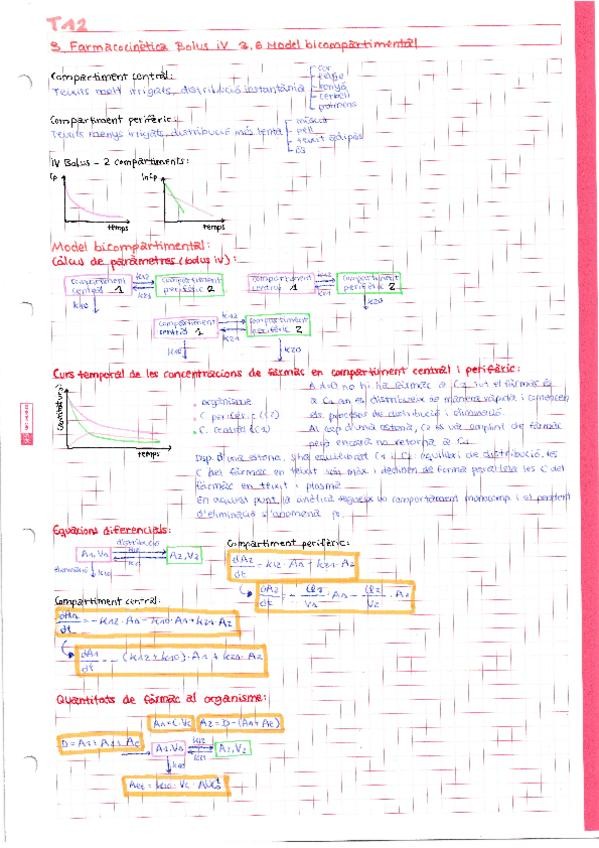 T12
3. Farmacocinètica Bolus iV 3.6 Model bicompartimental
Compartiment central:
Teixits molt irrigats, distribució instantània
cor
fetge
ronyó
cervell
pulmons
Compartiment perifèric:
Teixits menys irrigats, distribució més lenta
múscul
pell
teixit adipós
os
iV Bolus - 2 compartiments:
Cp
lnCp
temps
temps
Model bicompartimental:
Càlcul de paràmetres (bolus iv):
compartiment central 1
k12
k21
compartiment perifèric 2
k10
compartiment central 1
k12
k21
compartiment perifèric 2
k20
compartiment central 1
k12
k21
compartiment perifèric 2
k10
k20
Curs temporal de les concentracions de fàrmac en compartiment central i perifèric:
temps
organisme
C. perifèric (C2)
C. central (C1)
A t=0 no hi ha fàrmac a C2, tot el fàrmac és
a C1 on es distribueix de manera ràpida i comencen
els processos de distribució i eliminació.
Al cap d'una estona, C2 es va omplint de fàrmac
però encara no retorna a C1.
Dsp. d'una estona, hi ha equilibri C1 i C2 equilibri de distribució, les
C del fàrmac en teixit són màx i declinen de forma paral·lela les C del
fàrmac en teixit i plasma
En aquest punt, la anàlisi segueix un comportament monocomp i el pendent
d'eliminació s'anomena β.
Equacions diferencials:
distribució
A1,V1
k12
A2,V2
eliminació
k10
Compartiment perifèric:
dA2/dt = k12·A1 + k21·A2
Compartiment central:
dA1/dt = -k12·A1 - k10·A1 + k21·A2
dA1/dt = -(k12+k10)·A1 + k21·A2
Quantitats de fàrmac al organisme:
A1=C·Vc
A2=D-(A1+Ae)
D=A1+A2+Ae
A1,V1
k12
k21
A2,V2
k10